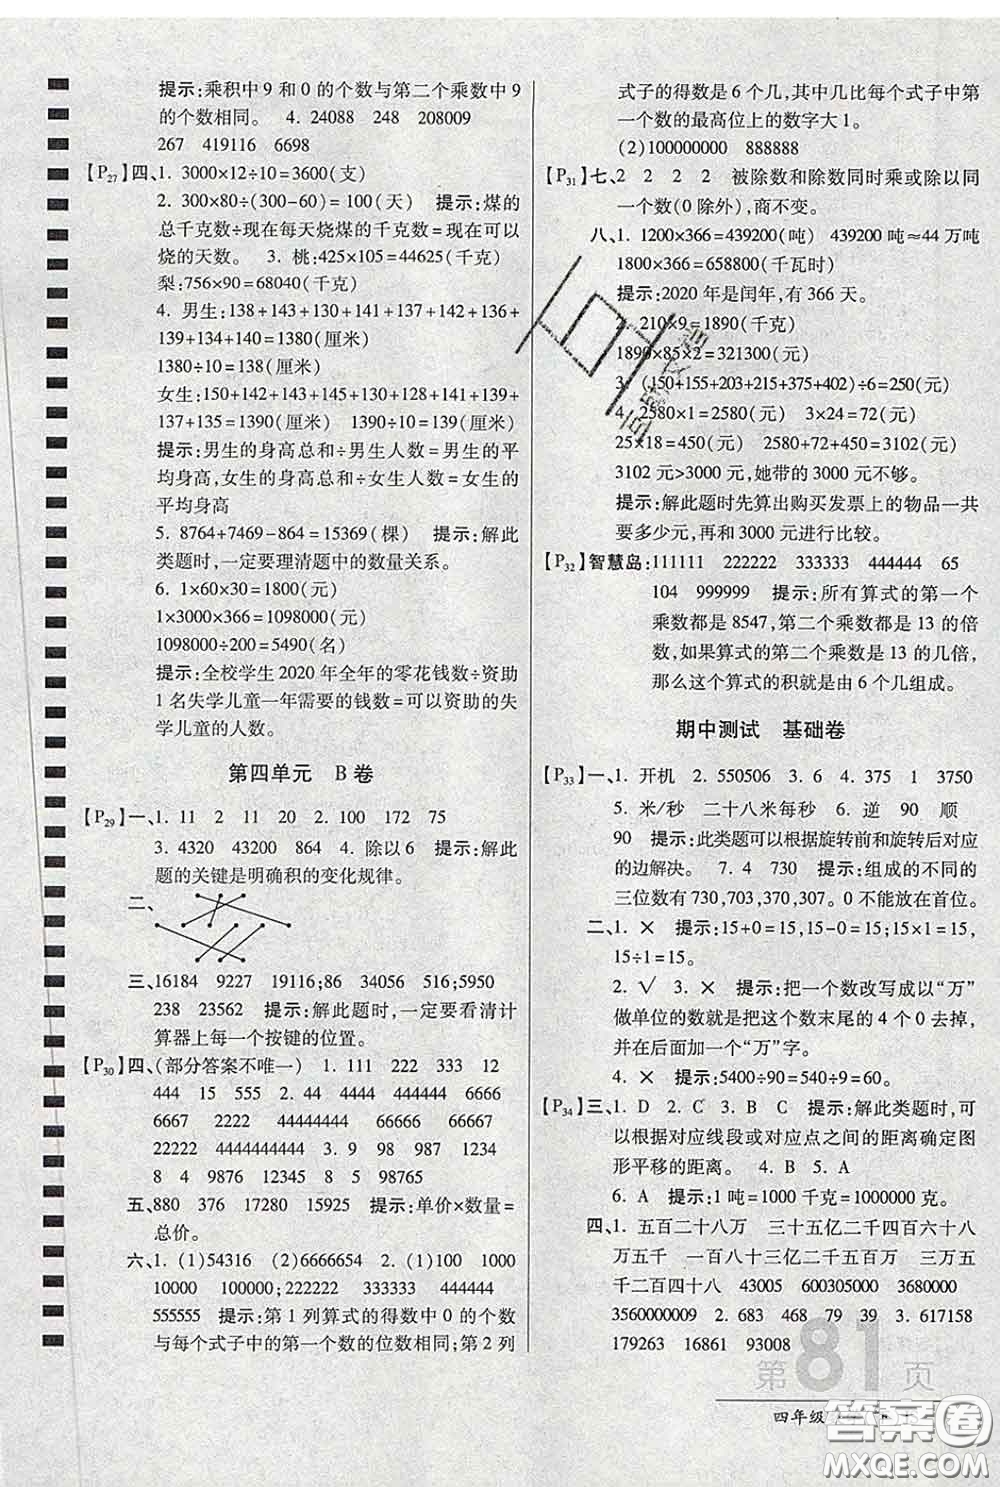 提示:乘积中 9 和 0 的个数与第二个乘数中 9
的个数相同。 4. 24088 248 208009
267 419116 6698
【P27】四、1. 3000×12÷10=3600(支)
2. 300×80÷(300-60)=100(天) 提示:煤的
总千克数÷现在每天烧煤的千克数=现在可以
烧的天数。 3. 桃:425×105=44625(千克)
梨:756×90=68040(千克)
4. 男生:138+143+130+141+137+142+136+
139+134+140=1380(厘米)
1380÷10=138(厘米)
女生:150+142+143+145+130+128+141+
139+137+135=1390(厘米) 1390÷10=139(厘米)
提示:男生的身高总和÷男生人数=男生的平
均身高,女生的身高总和÷女生人数=女生的
平均身高
5. 8764+7469-864=15369(棵) 提示:解此
类题时,一定要理清题中的数量关系。
6. 1×60×30=1800(元)
1×3000×366=1098000(元)
1098000÷200=5490(名)
提示:全校学生 2020 年全年的零花钱数÷资助
1 名失学儿童一年需要的钱数=可以资助的失
学儿童的人数。
第四单元 B 卷
【P29】一、1. 11 2 11 20 2. 100 172 75
3. 4320 43200 864 4. 除以 6 提示:解此
题的关键是明确积的变化规律。
二、
三、16184 9227 19116;86 34056 516;5950
238 23562 提示:解此题时,一定要看清计
算器上每一个按键的位置。
【P30】四、(部分答案不唯一) 1. 111 222 333 12
444 15 555 2. 44 444 4444 6666
6667 2222 44444444 66666 66667
22222 4444444444 3. 1 9 12 98 123
8 4 9876 12345 5 98765
五、880 376 17280 15925 提示:单价×数量=
总价。
六、1. (1)54316 (2)6666654 2. (1)100 1000
10000 100000;222222 333333 444444
555555 提示:第 1 列算式的得数中 0 的个数
与每个式子中的第一个数的位数相同;第 2 列
式子的得数是 6 个几,其中几比每个式子中第
一个数的最高位上的数字大 1。
(2)100000000 888888
【P31】七、2 2 2 2 被除数和除数同时乘或除以同
一个数(0 除外),商不变。
八、1. 1200×366=439200(吨) 439200 吨≈44 万吨
1800×366=658800(千瓦时)
提示:2020 年是闰年,有 366 天。
2. 210×9=1890(千克)
1890×85×2=321300(元)
3. (150+155+203+215+375+402)÷6=250(元)
4. 2580×1=2580(元) 3×24=72(元)
25×18=450(元) 2580+72+450=3102(元)
3102 元>3000 元,她带的 3000 元不够。
提示:解此题时先算出购买发票上的物品一共
要多少元,再和 3000 元进行比较。
【P32】智慧岛:111111 222222 333333 444444 65
104 999999 提示:所有算式的第一个
乘数都是 8547,第二个乘数都是 13 的倍
数,如果算式的第二个乘数是 13 的几倍,
那么这个算式的积就是由 6 个几组成。
期中测试 基础卷
【P33】一、1. 开机 2. 550506 3. 6 4. 375 1 3750
5. 米/秒 二十八米每秒 6. 逆 90 顺
90 提示:此类题可以根据旋转前和旋转后对应
的边解决。 7. 4 730 提示:组成的不同的
三位数有 730,703,370,307。0 不能放在首位。
二、1. × 提示:15+0=15,15-0=15;15×1=15,
15÷1=15。
2. √ 3. × 提示:把一个数改写成以“万”
做单位的数就是把这个数末尾的 4 个 0 去掉,
并在后面加一个“万”字。
4. × 提示:5400÷90=5400÷9÷10=60。
【P34】三、1. D 2. C 3. B C 提示:解此类题时,可
以根据对应线段或对应点之间的距离确定图
形平移的距离。 4. B 5. A
6. A 提示:1 吨=1000 千克=1000000 克。
四、1. 五百二十八万 三十五亿二千四百六十八
万五千 一百八十三亿二千五百万 三万五
千二百四十八 43005 600305000 3680000
3560000009 2. 683 468 79 39 3. 617158
179263 16861 93008
第81页
四年级
答案圈
MXQE.COM